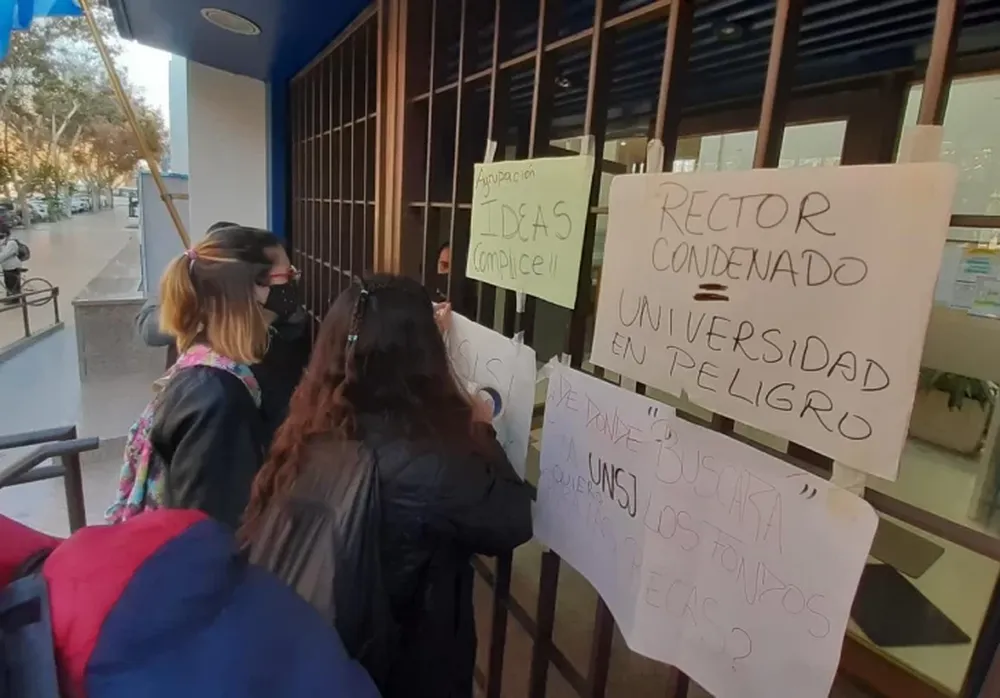 Agrupación
IDEAS
Complice!!
RECTOR
CONDENADO
=
UNIVERSIDAD
EN PELIGRO
¿DE DONDE "BUSCARA"
LA UNSJ LOS FONDOS
BECAS?